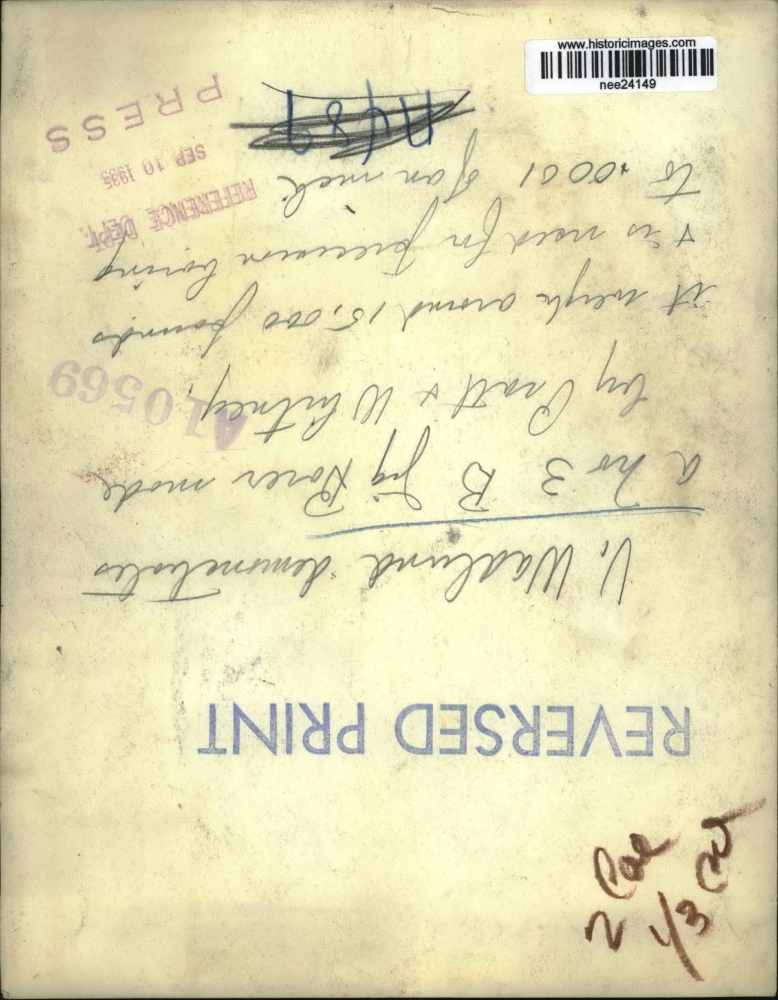 www.historicimages.com
nee24149
REVERSED PRINT
V. Wadlund demonstrates
a no 3 B Jig Borer made
by Pratt & Whitney.
it weighs around 15,000 pounds
& is used for precision boring
to .0001 of an inch
A10569
REFERENCE DEPT.
SEP 10 1935
PRESS
2 Col
1/3 cut